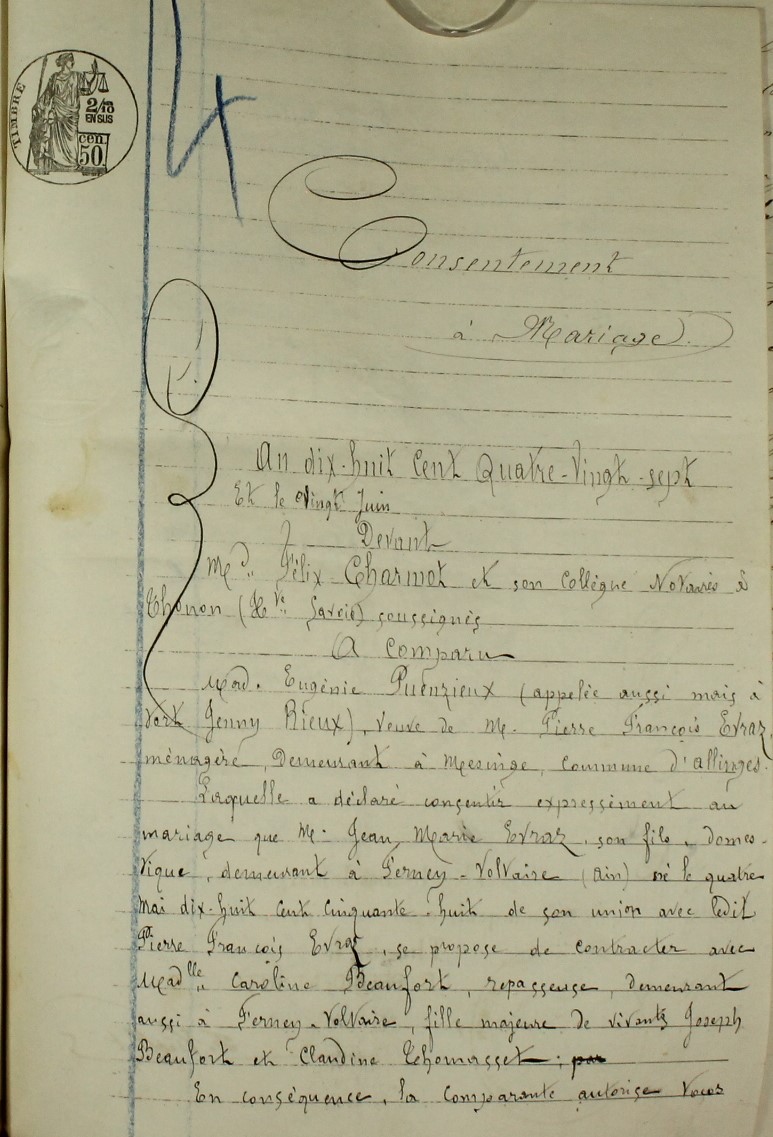 TIMBRE
2/10
EN SUS
cen.
50.
Consentement
à Mariage.
L'
An dix-huit Cent Quatre-Vingt-sept
Et le vingt Juin
Devant
Me. Félix Charmot et son Collègue Notaires à
Thonon (Hte Savoie) soussignés
A Comparu
Mad. Eugénie (appelée aussi mais à
tort Jenny Rieux), veuve de M. Pierre François Evraz,
ménagère, Demeurant à Mesinge, commune d'Allinges.
Laquelle a déclaré consentir expressément au
mariage que M. Jean Marie Evraz, son fils, domes-
tique, demeurant à Ferney-Voltaire (Ain) né le quatre
Mai dix-huit Cent Cinquante-huit de son union avec ledit
Pierre François Evraz, se propose de contracter avec
Madlle Caroline Beaufort, repasseuse, demeurant
aussi à Ferney-Voltaire, fille majeure de vivants Joseph
Beaufort et Claudine Thomasset; par
En conséquence, la Comparante autorise tous